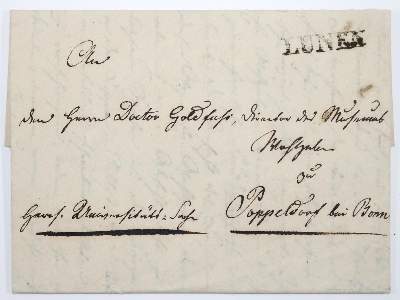 LUNEN
An
den Herrn Doctor Goldfuß, Director des Museums
zu
Herrs. Universitäts-Sache Poppelsdorf bei Bonn